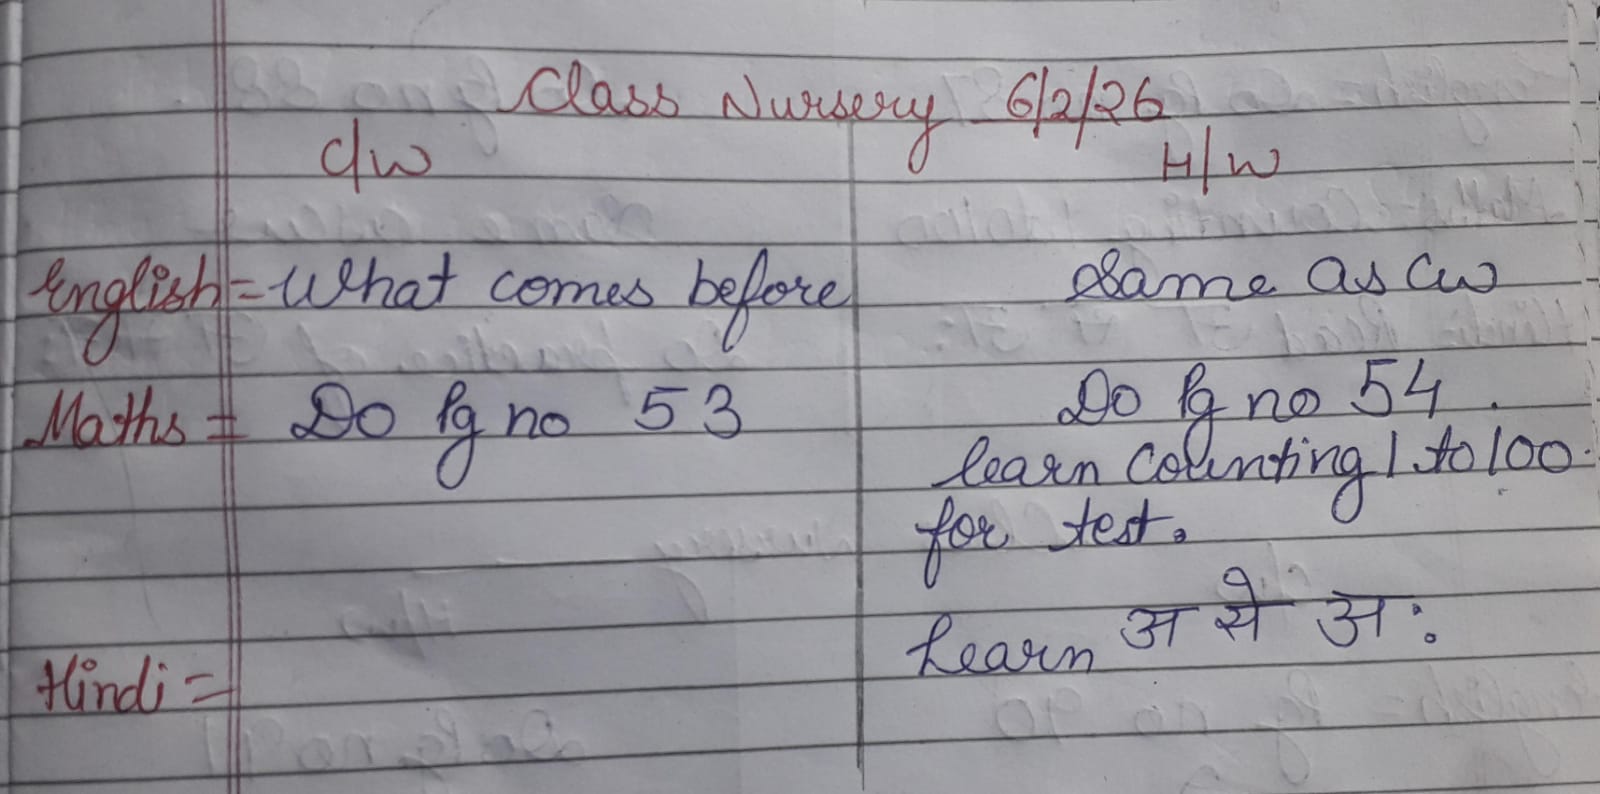 Class Nursery 6/2/26
C/W H/W
English = What comes before Same as Cw
Maths = Do Pg no 53 Do Pg no 54.
learn counting 1 to 100.
for test.
Learn अ से अः
Hindi =